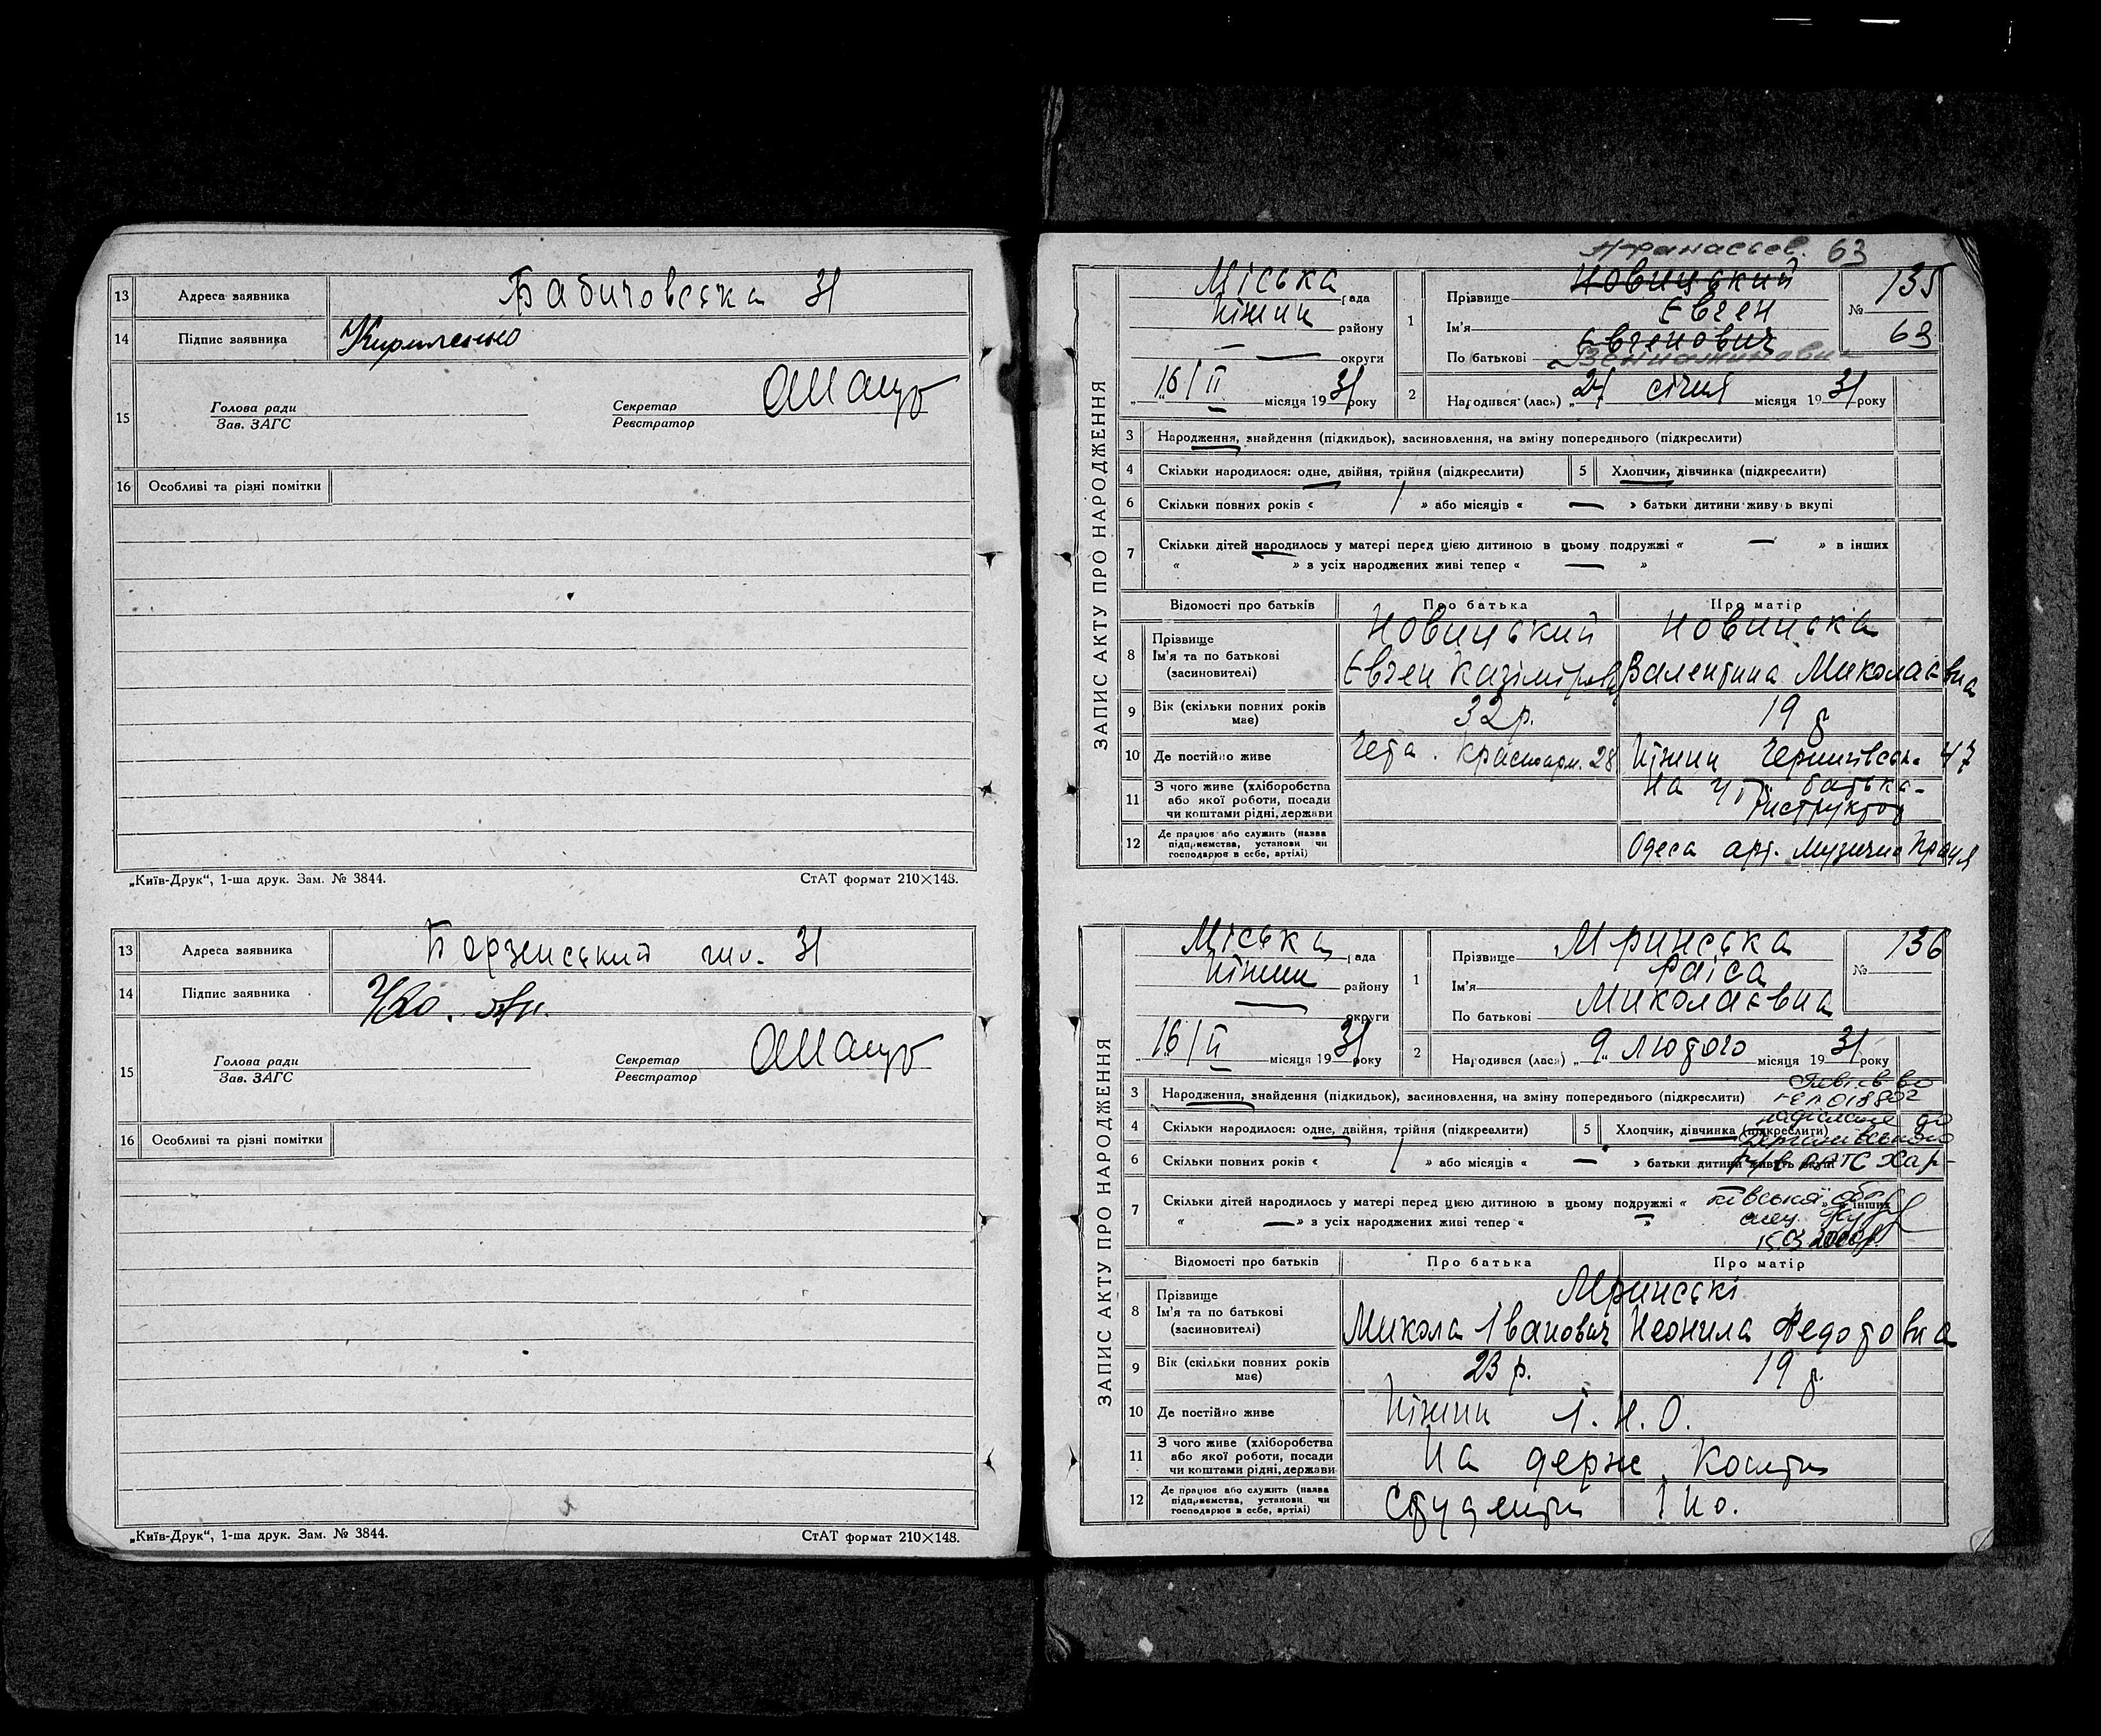 13 Адреса заявника Бабичовська 31
14 Підпис заявника Кириленко
15 Голова ради
Зав. ЗАГС
Секретар
Реєстратор
16 Особливі та різні помітки
„Київ-Друк“, 1-ша друк. Зам. № 3844. СтАТ формат 210×148.
13 Адреса заявника Борзенський шл. 31
14 Підпис заявника
15 Голова ради
Зав. ЗАГС
Секретар
Реєстратор
16 Особливі та різні помітки
„Київ-Друк“, 1-ша друк. Зам. № 3844. СтАТ формат 210×148.
Афанасьев 63
ЗАПИС АКТУ ПРО НАРОДЖЕННЯ
Міська рада
Ніжин району
— округи
„16/II місяця 1931 року
1 Прізвище Новицький
Ім'я Євген
По батькові Євгенович
Вениаминович
№ 135
63
2 Народився (лась) „21 січня місяця 1931 року
3 Народження, знайдення (підкидьок), засиновлення, на зміну попереднього (підкреслити)
4 Скільки народилося: одне, двійня, трійня (підкреслити) 5 Хлопчик, дівчинка (підкреслити)
6 Скільки повних років « 1 » або місяців « — » батьки дитини живуть вкупі
7 Скільки дітей народилось у матері перед цією дитиною в цьому подружжі « — » в інших
« » з усіх народжених живі тепер « — »
Відомості про батьків Про батька Про матір
8 Прізвище
Ім'я та по батькові
(засиновителі)
Новицький Новицька
Євген Казімірович Валентина Миколаєвна
9 Вік (скільки повних років має) 32 р. 19 р.
10 Де постійно живе Красноарм. 28 Ніжин Чернигівськ. 47
11 З чого живе (хліборобства
або якої роботи, посади
чи коштами рідні, держави
На батька -
інструктор
12 Де працює або служить (назва
підприємства, установи чи
господарює в себе, артілі)
Одеса арт.
ЗАПИС АКТУ ПРО НАРОДЖЕННЯ
Міська рада
Ніжин району
— округи
16/II місяця 1931 року
1 Прізвище Мринська
Ім'я Раїса
По батькові Миколаєвна
№ 136
2 Народився (лась) „9„ лютого місяця 1931 року
3 Народження, знайдення (підкидьок), засиновлення, на зміну попереднього (підкреслити)
4 Скільки народилося: одне, двійня, трійня (підкреслити) 5 Хлопчик, дівчинка (підкреслити)
6 Скільки повних років « 1 » або місяців « — » батьки дитини живуть вкупі
7 Скільки дітей народилось у матері перед цією дитиною в цьому подружжі « — » в інших
« — » з усіх народжених живі тепер « — »
РАГС Хар-
ківської обл.
15.03.2000р.
Відомості про батьків Про батька Про матір
8 Прізвище
Ім'я та по батькові
(засиновителі)
Мринські
Микола Іванович Неонила Федотовна
9 Вік (скільки повних років має) 23 р. 19 р.
10 Де постійно живе Ніжин І.Н.О.
11 З чого живе (хліборобства
або якої роботи, посади
чи коштами рідні, держави
На держ. кошти
12 Де працює або служить (назва
підприємства, установи чи
господарює в себе, артілі)
Студенти ІНО.